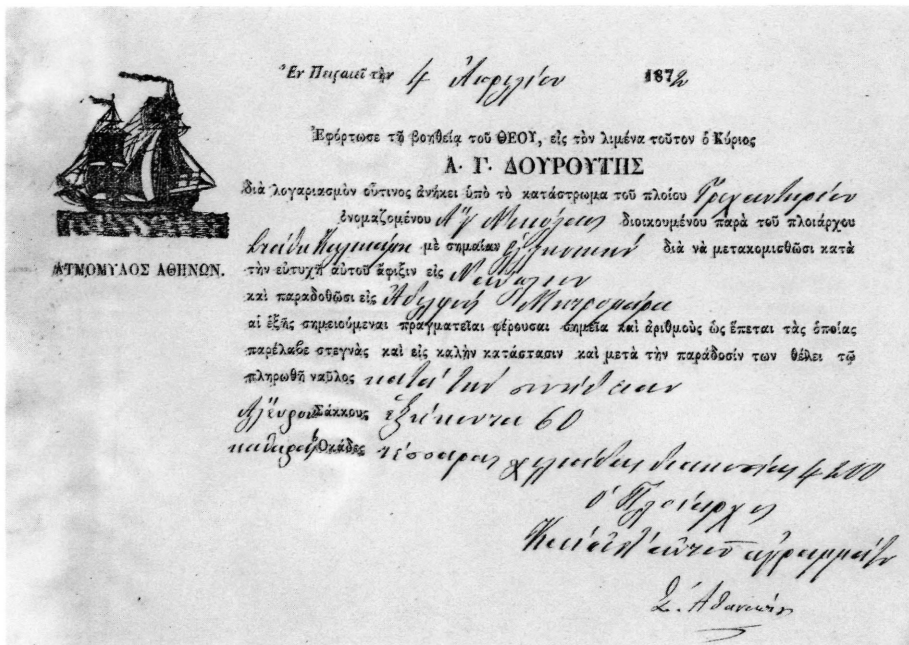 Ἐν Πειραιεῖ τὴν 4 Ἀπριλίου 1872
Ἐφόρτωσε τῇ βοηθείᾳ τοῦ ΘΕΟΥ, εἰς τὸν λιμένα τοῦτον ὁ Κύριος
Α. Γ. ΔΟΥΡΟΥΤΗΣ
διὰ λογαριασμὸν οὗτινος ἀνήκει ὑπὸ τὸ κατάστρωμα τοῦ πλοίου Τρεχαντηρίου
ὀνομαζομένου διοικουμένου παρὰ τοῦ πλοιάρχου
μὲ σημαίαν Ἑλληνικήν διὰ νὰ μετακομισθῶσι κατὰ
ΑΤΜΟΜΥΛΟΣ ΑΘΗΝΩΝ.
τὴν εὐτυχῆ αὐτοῦ ἄφιξιν εἰς Ναύπλιον
καὶ παραδοθῶσι εἰς Ἀδελφούς
αἱ ἑξῆς σημειούμεναι πραγματεῖαι φέρουσαι σημεῖα καὶ ἀριθμοὺς ὡς ἕπεται τὰς ὁποίας
παρέλαβε στεγνὰς καὶ εἰς καλὴν κατάστασιν καὶ μετὰ τὴν παράδοσίν των θέλει τῷ
πληρωθῇ ναῦλος κατά τήν συνήθειαν
Ἀλεύρου Σάκκους ἑξήκοντα 60
καθαρὰς Ὀκάδες τέσσαρας χιλιάδας διακοσίας 4200
ὁ Πλοίαρχος
ἀγραμμάτου